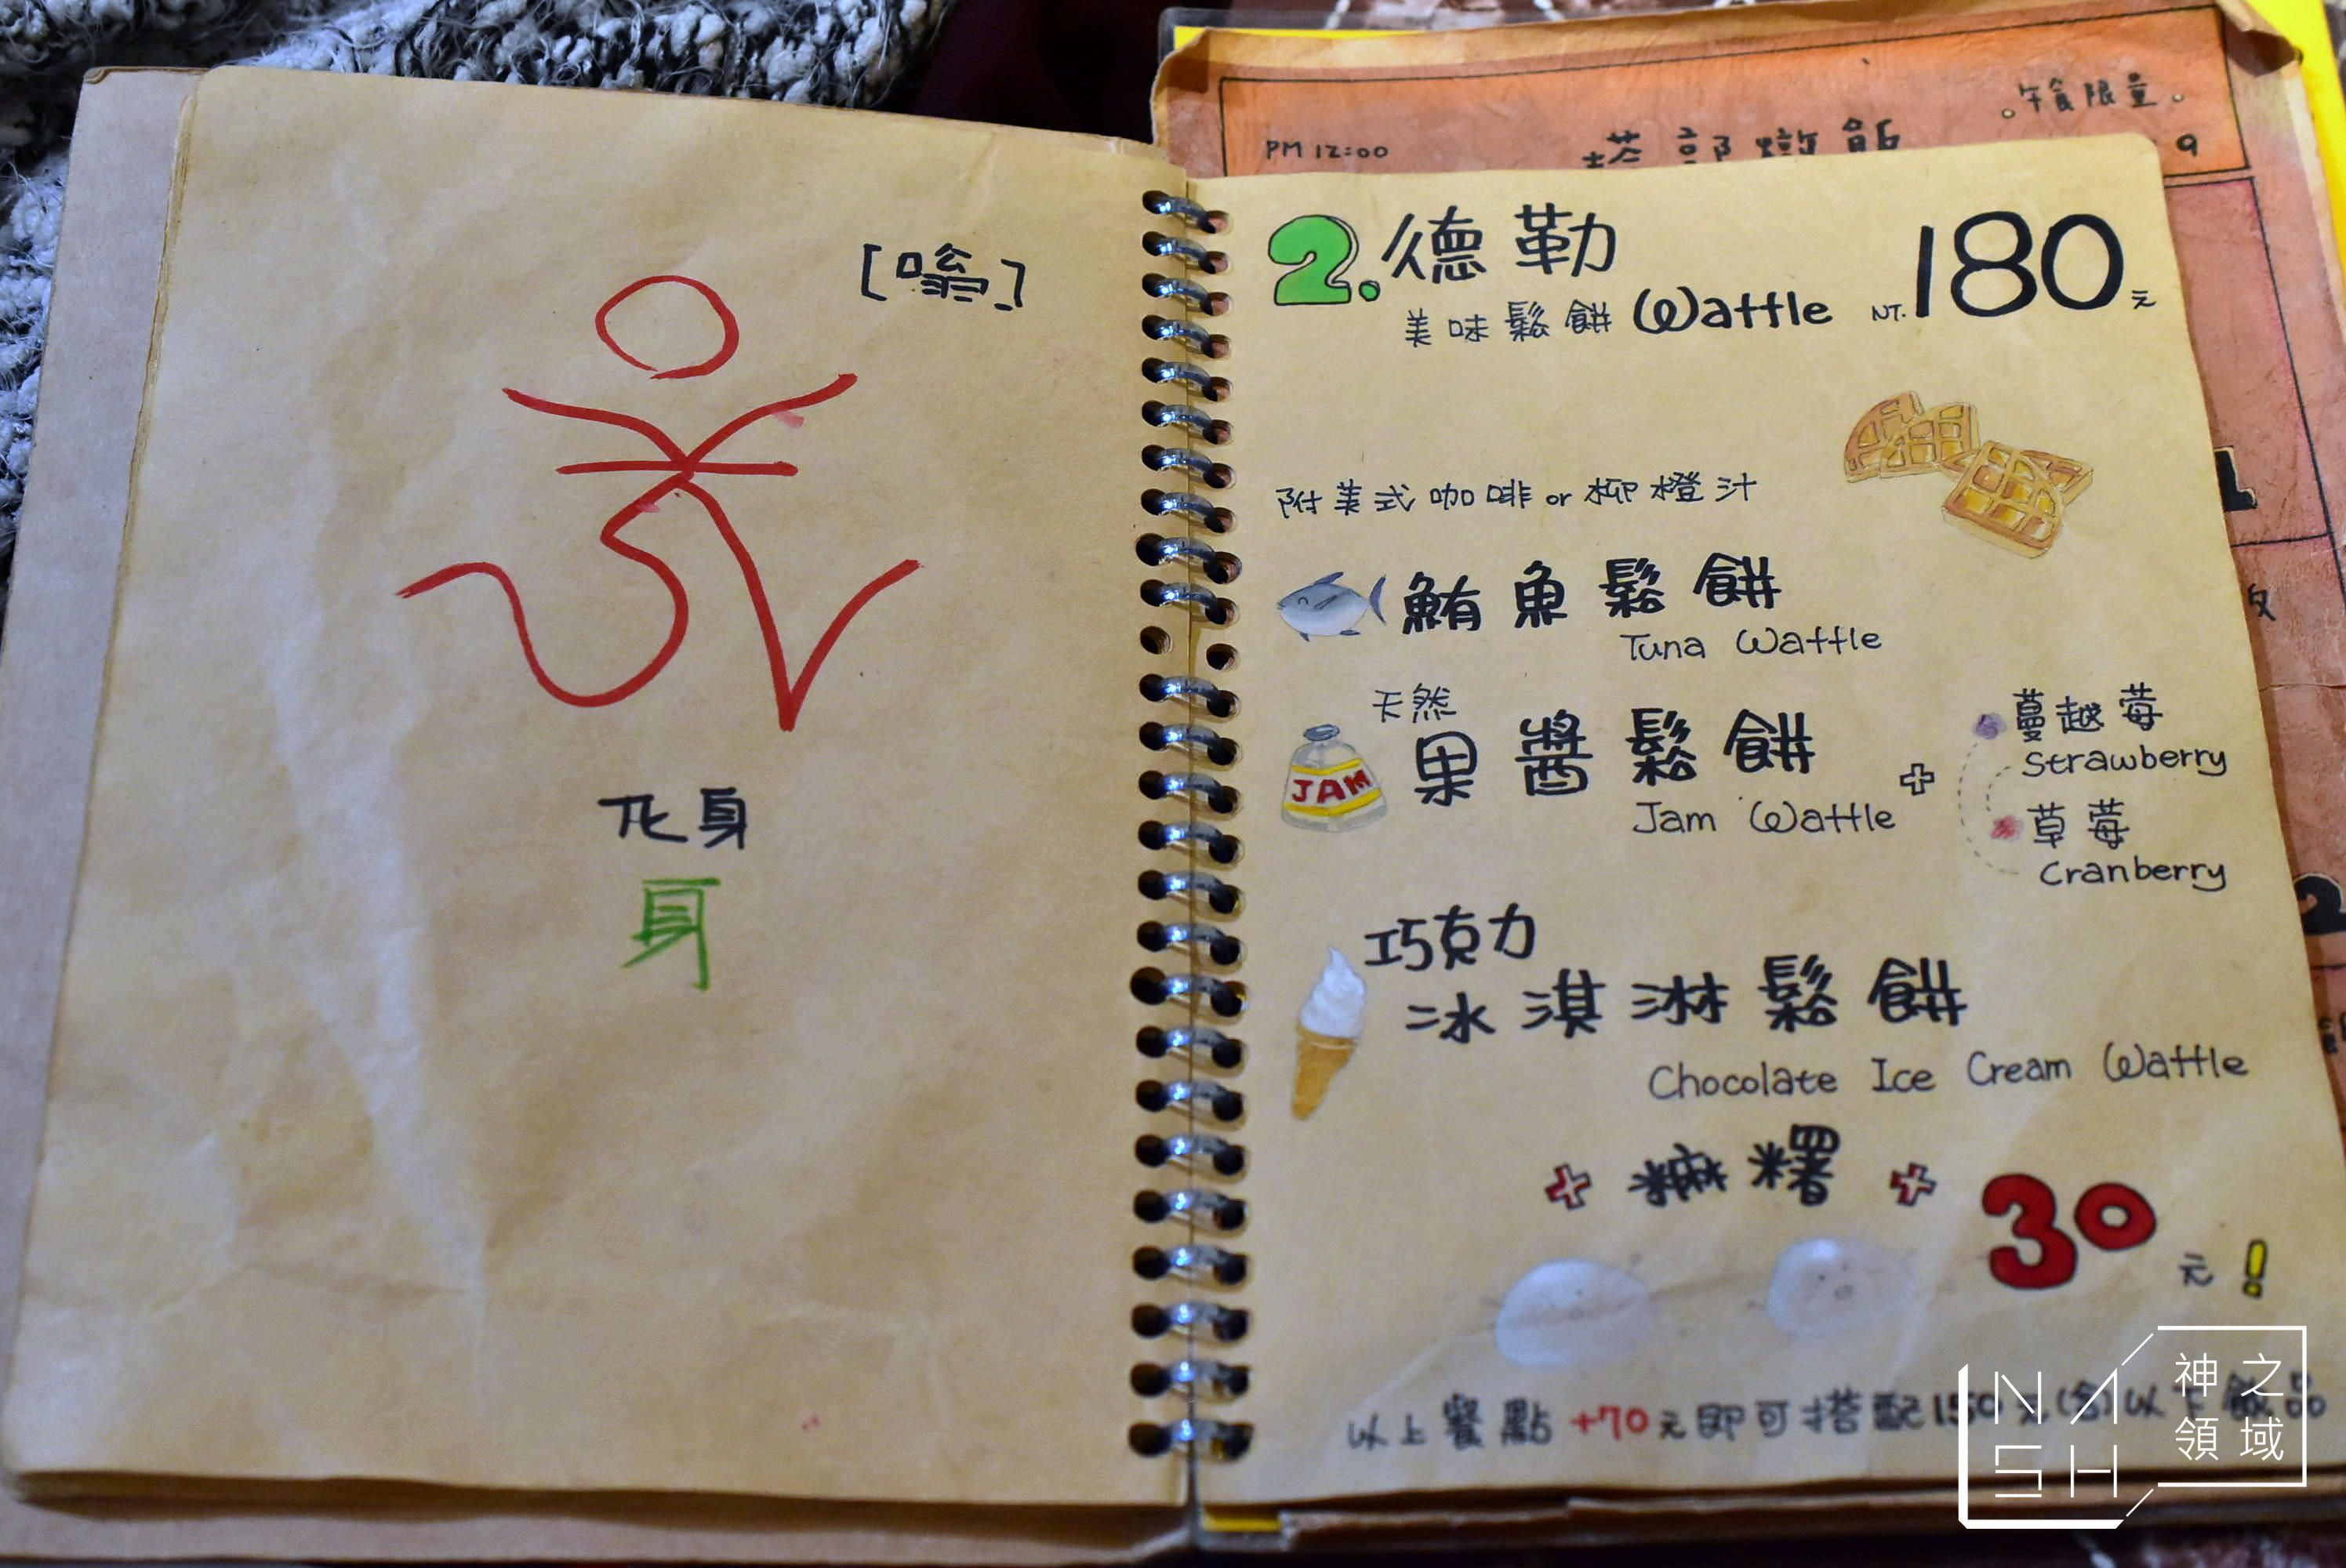 [嗡]
化身
身
PM 12:00
。午食限量。
塔部燉飯
9
2.德勒
美味鬆餅 Waffle NT.180元
附美式咖啡or柳橙汁
鮪魚鬆餅
Tuna Waffle
天然
果醬鬆餅
Jam Waffle
+
蔓越莓
Strawberry
草莓
Cranberry
JAM
巧克力
冰淇淋鬆餅
Chocolate Ice Cream Waffle
+ 麻糬 + 30元!
以上餐點+70元即可搭配150元(含)以下飲品
NASH
神之
領域